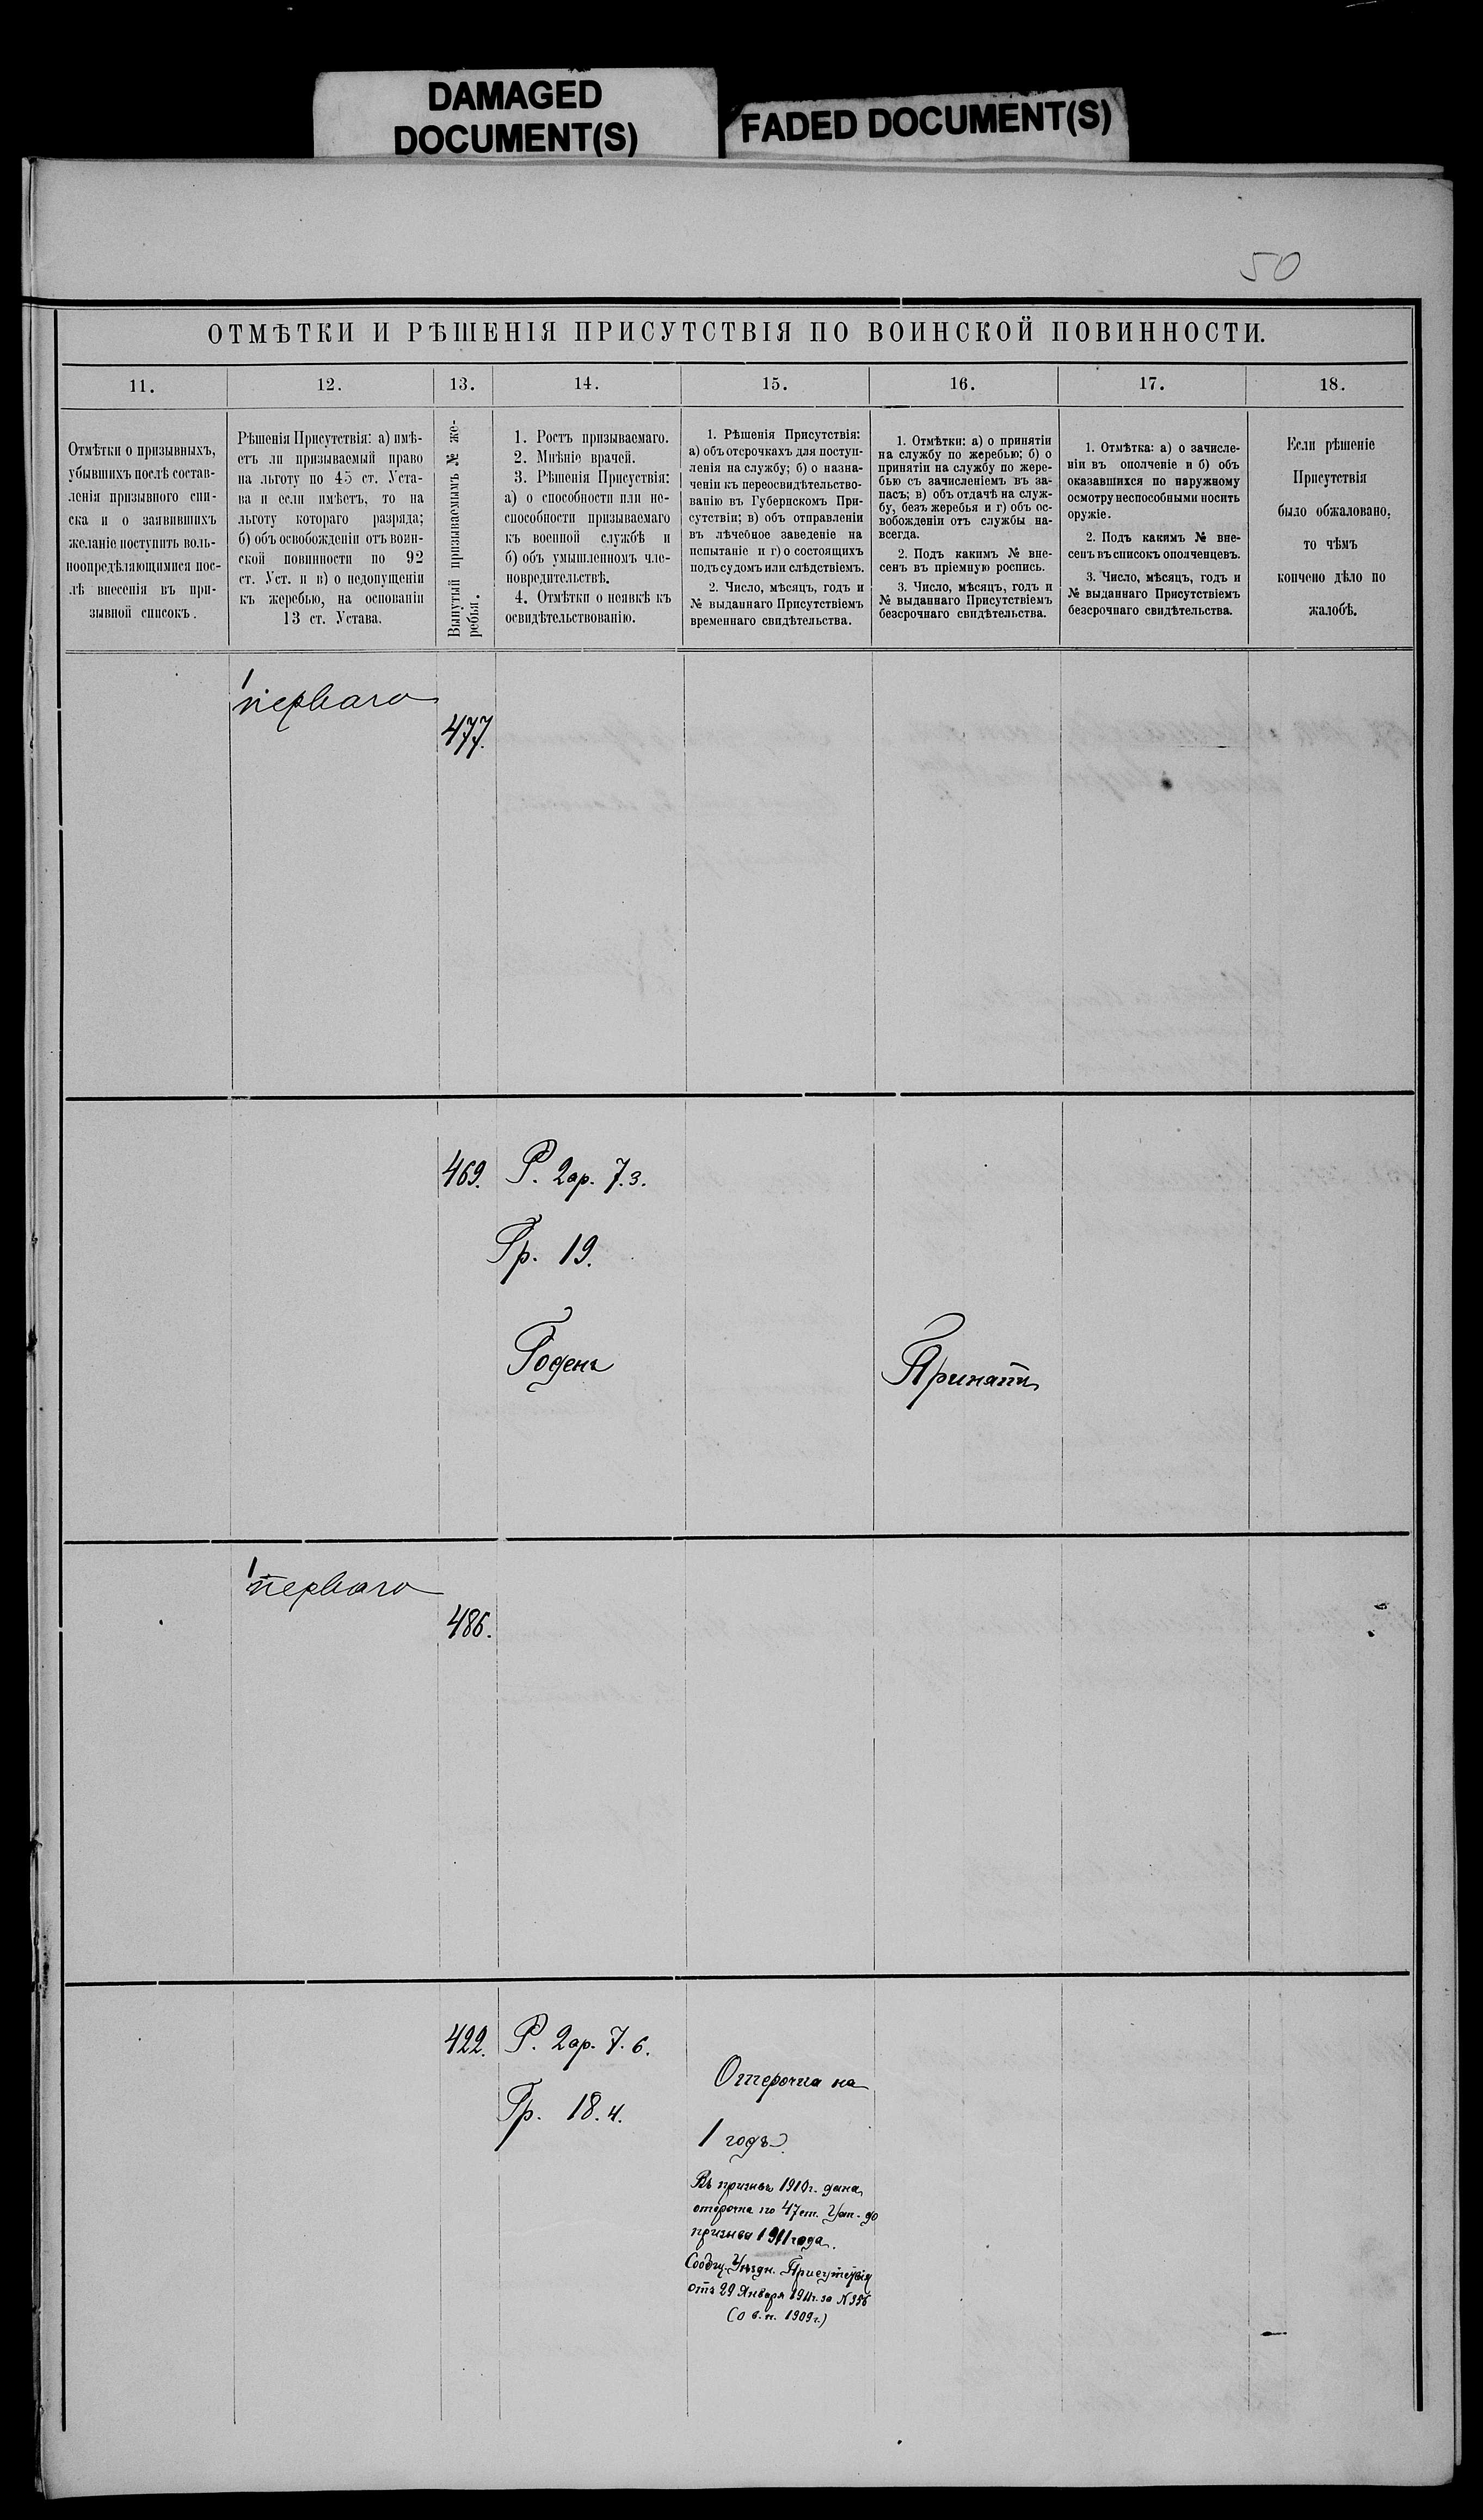 DAMAGED
DOCUMENT(S)
FADED DOCUMENT(S)
50
ОТМѢТКИ И РѢШЕНІЯ ПРИСУТСТВІЯ ПО ВОИНСКОЙ ПОВИННОСТИ.
11.
12.
13.
14.
15.
16.
17.
18.
Отмѣтки о призывныхъ,
убывшихъ послѣ состав-
ленія призывного спи-
ска и о заявившихъ
желаніе поступить воль-
ноопредѣляющимися пос-
лѣ внесенія въ при-
зывной списокъ.
Рѣшенія Присутствія: а) имѣ-
етъ ли призываемый право
на льготу по 45 ст. Уста-
ва и если имѣетъ, то на
льготу котораго разряда;
б) объ освобожденіи отъ воин-
ской повинности по 92
ст. Уст. и в) о недопущеніи
къ жеребью, на основаніи
13 ст. Устава.
Вынутый призываемымъ № же-
ребья.
1. Ростъ призываемаго.
2. Мнѣніе врачей.
3. Рѣшенія Присуствія:
а) о способности или не-
способности призываемаго
къ военной службѣ и
б) объ умышленномъ чле-
новредительствѣ.
4. Отмѣтки о неявкѣ къ
освидѣтельствованію.
1. Рѣшенія Присутствія:
а) объ отсрочкахъ для поступ-
ленія на службу; б) о назна-
ченіи къ переосвидѣтельство-
ванію въ Губернскомъ При-
сутствіи; в) объ отправленіи
въ лѣчебное заведеніе на
испытаніе и г) о состоящихъ
подъ судомъ или слѣдствіемъ.
2. Число, мѣсяцъ, годъ и
№ выданнаго Присутствіемъ
временнаго свидѣтельства.
1. Отмѣтки: а) о принятіи
на службу по жеребью; б) о
принятіи на службу по жере-
бью съ зачисленіемъ въ за-
пасъ; в) объ отдачѣ на служ-
бу, безъ жеребья и г) объ ос-
вобожденіи отъ службы на-
всегда.
2. Подъ какимъ № вне-
сенъ въ пріемную роспись.
3. Число, мѣсяцъ, годъ и
№ выданнаго Присутствіемъ
безсрочнаго свидѣтельства.
1. Отмѣтка: а) о зачисле-
ніи въ ополченіе и б) объ
оказавшихся по наружному
осмотру неспособными носить
оружіе.
2. Подъ какимъ № вне-
сенъ въ списокъ ополченцевъ.
3. Число, мѣсяцъ, годъ и
№ выданнаго Присутствіемъ
безсрочнаго свидѣтельства.
Если рѣшеніе
Присутствія
было обжаловано,
то чѣмъ
кончено дѣло по
жалобѣ.
1
перваго
477.
469.
Р. 2ар. 7.3.
Гр. 19.
Годенъ
Принять
1
перваго
486.
422.
Р. 2ар. 7.6.
Гр. 18.4.
Отсрочка на
1 годъ.
Въ призывъ 1910г. дана
отсрочка по 47 ст. Уст. до
призыва 1911 года.
Сообщ. Уѣздн. Присутствія
отъ 29 Января 1911г. за №
(О в. п. 1909 г.)